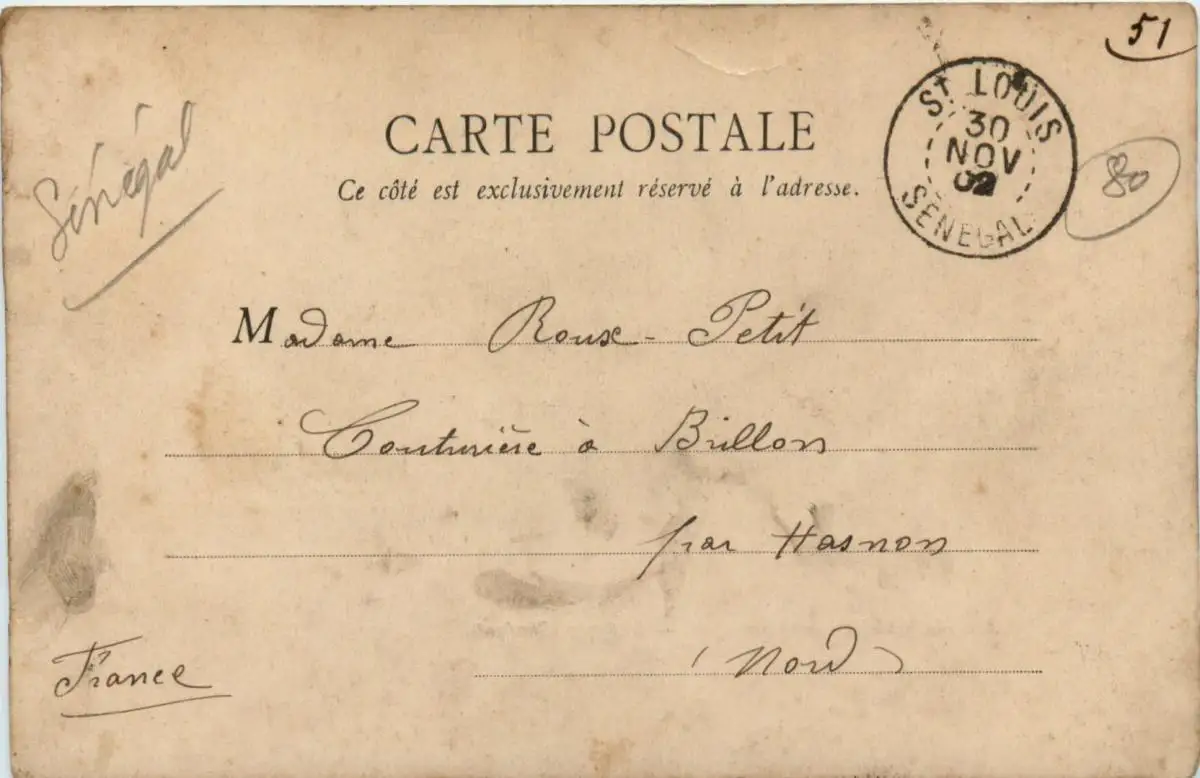 51
Sénégal
CARTE POSTALE
Ce côté est exclusivement réservé à l'adresse.
ST LOUIS
30
NOV
02
SÉNÉGAL
80
Madame Roux-Petit
Couturière à Brillon
par Hasnon
(Nord)
France